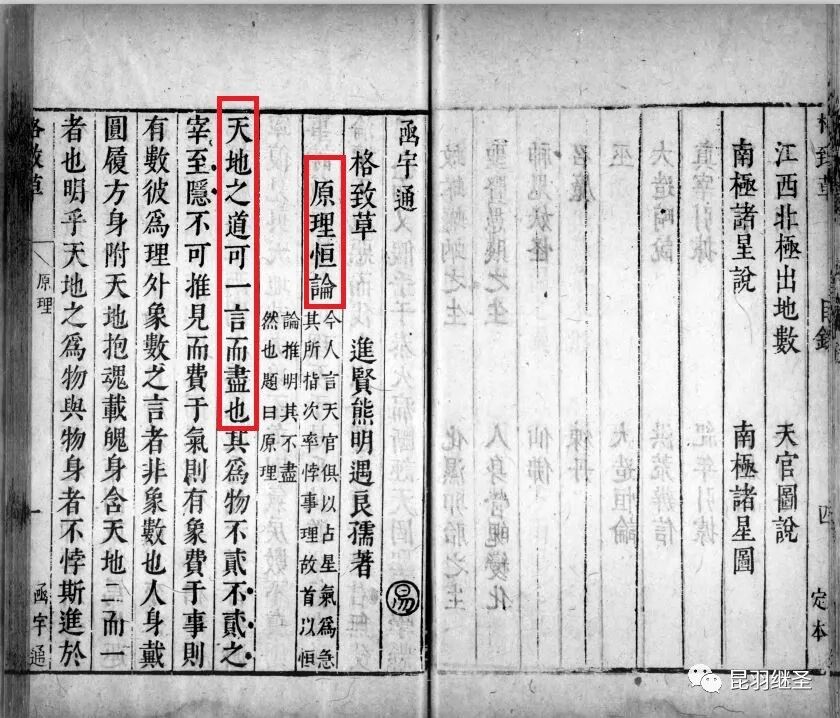 格致草 目録 四 定本
江西北極出地數 天官圖說
南極諸星說 南極諸星圖
函宇通
格致草 進賢熊明遇良孺著
原理恒論
今人言天官俱以占星氣爲急
其所指次率悖事理故首以恒
論推明其不盡
然也題曰原理
天地之道可一言而盡也其爲物不貳不貳之
宰至隱不可推見而費于氣則有象費于事則
有數彼爲理外象數之言者非象數也人身戴
圓履方身附天地抱魂載魄身含天地二而一
者也明乎天地之爲物與物身者不悖斯進於
格致草 原理 一 函宇通
昆羽继圣